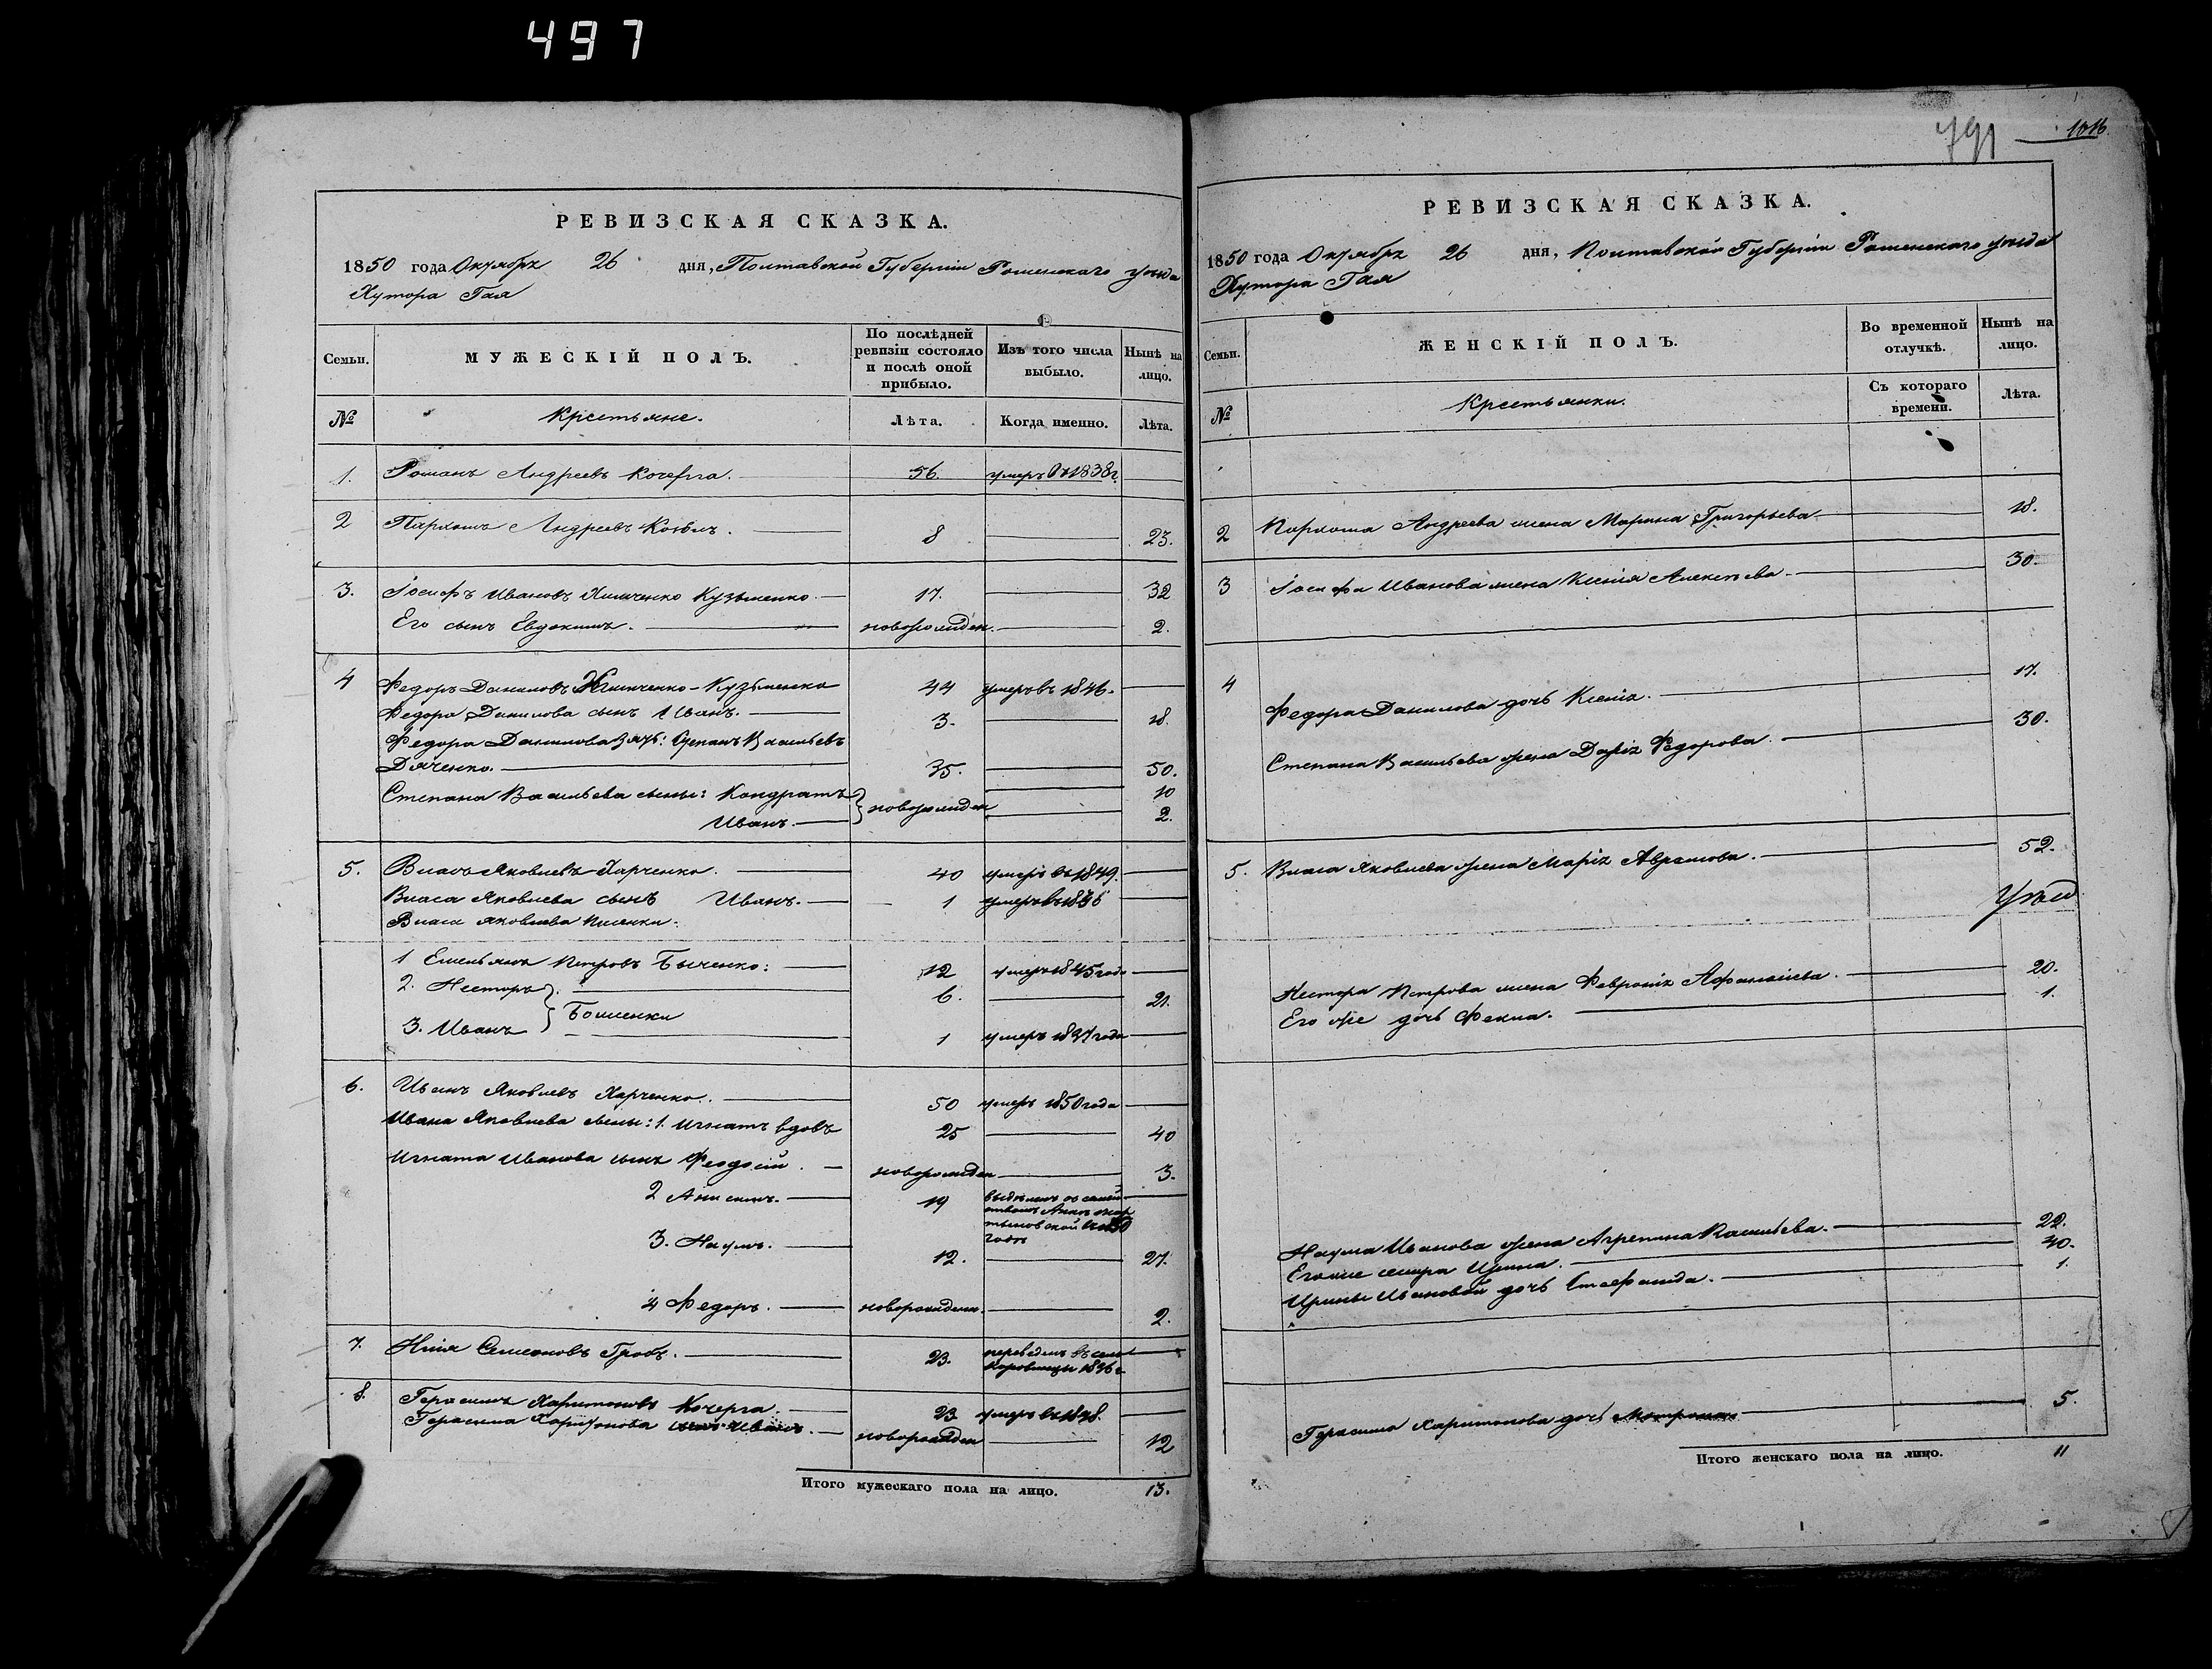 497
791
1016
РЕВИЗСКАЯ СКАЗКА.
1850 года Октября 26 дня, Полтавской Губерніи Роменскаго уѣзда
Хутора Гая
Семьи.
МУЖЕСКІЙ ПОЛЪ.
По послѣдней ревизіи состояло и послѣ оной прибыло.
Изъ того числа выбыло.
Нынѣ на лицо.
№ Крестьяне. Лѣта. Когда именно. Лѣта.
1. Романъ Андреевъ Кочерга. 56. умеръ въ 1838г
2 Пархомъ Андреевъ 8 23.
3. Іосифъ Ивановъ Климченко Кузьменко 17. 32
Его сынъ Евдокимъ. новорожден. 2.
4 Федоръ Даниловъ Климченко-Кузьменко 44 умеръ въ 1846.
Федора Данилова сынъ Иванъ. 3. 18.
Федора Данилова зять: Степанъ Васильевъ
Дяченко. 35. 50.
Степана Васильева сыны: Кондратъ новорожден 10
Иванъ. 2.
5. Власъ Яковлевъ Харченко. 40 умеръ въ 1849.
Власа Яковлева сынъ Иванъ. 1 умеръ въ
Власа Яковлева
1 Емельянъ Петровъ 12 умеръ 1845 года
2. Несторъ 6. 21.
3. Иванъ 1 умеръ года
6. Иванъ Яковлевъ Харченко. 50 умеръ 1850 года
Ивана Яковлева сыны: 1. Игнатъ вдовъ 25 40
Игната Иванова сынъ Феодосій. новорожден 3.
2 Анисимъ. 19
3. Наумъ. 12. 27.
4 Федоръ. новорожден. 2.
7. Илія Семеновъ 23. переведенъ въ 1846 г
8. Герасимъ Харитоновъ Кочерга. 23 умеръ въ 1848.
Герасима Харитонова сынъ Иванъ. новорожден 12
Итого мужескаго пола на лицо. 13.
РЕВИЗСКАЯ СКАЗКА.
1850 года Октября 26 дня, Полтавской Губерніи Роменскаго уѣзда
Хутора Гая
Семьи.
ЖЕНСКІЙ ПОЛЪ.
Во временной отлучкѣ.
Нынѣ на лицо.
№ Крестьянки. Съ котораго времени. Лѣта.
2 Пархома Андреева жена Марина Григорьева 18.
3 Іосифа Иванова жена Ксенія Алексѣева 30.
4 Федора Данилова дочь Ксенія. 17.
Степана Васильева жена Дарія Федорова. 30.
5. Власа Яковлева жена Марія Аврамова. 52.
Нестора Петрова жена Февронія Афанасіева. 20.
Его же дочь Фекла. 1.
Наума Иванова жена Агрепина Васильева. 22.
Его же сестра Ирина. 40.
Ирины Ивановой дочь Стефанида. 1.
Герасима Харитонова дочь Мотрона 5.
Итого женскаго пола на лицо. 11